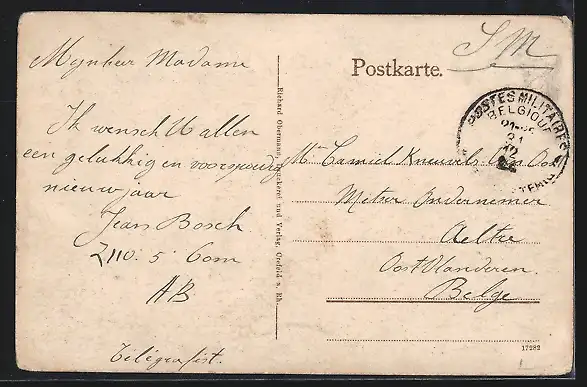 Mynheer Madame
Ik wensch U allen
een gelukkig en voorspoedig
nieuwjaar
Jean Bosch
Z110. 5 Com
AB
Telegrafist.
Richard Obermann, Druckerei und Verlag, Crefeld a. Rh.
S.M
Postkarte.
POSTES MILITAIRES
BELGIQUE
21
Mr Camiel Kneuvels-Van Oost
Metser Ondernemer
Aeltre
Oost Vlanderen.
Belge
17282